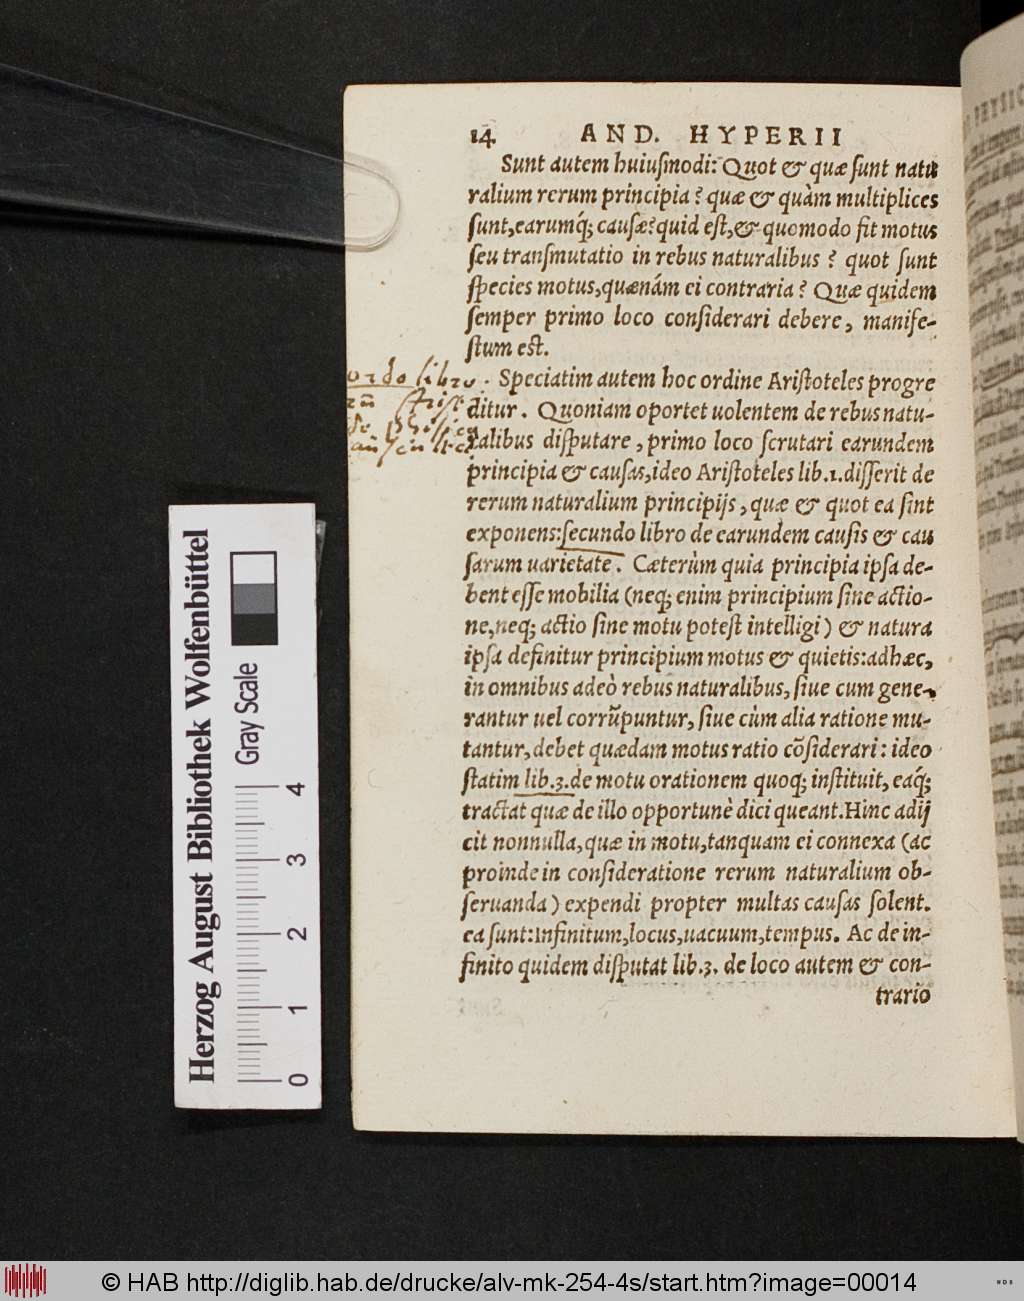 14 AND. HYPERII
Sunt autem huiuſmodi: Quot & quæ ſunt natu
ralium rerum principia? quæ & quàm multiplices
ſunt, earumq́; cauſæ? quid eſt, & quomodo fit motus
ſeu tranſmutatio in rebus naturalibus? quot ſunt
ſpecies motus, quænám ei contraria? Quæ quidem
ſemper primo loco conſiderari debere, manife-
ſtum eſt.
Speciatim autem hoc ordine Ariſtoteles progre
ditur. Quoniam oportet uolentem de rebus natu-
ralibus diſputare, primo loco ſcrutari earundem
principia & cauſas, ideo Ariſtoteles lib. 1. diſſerit de
rerum naturalium principijs, quæ & quot ea ſint
exponens: ſecundo libro de earundem cauſis & cau
ſarum uarietate. Cæterùm quia principia ipſa de-
bent eſſe mobilia (neq; enim principium ſine actio-
ne, neq; actio ſine motu poteſt intelligi) & natura
ipſa definitur principium motus & quietis: adhæc,
in omnibus adeò rebus naturalibus, ſiue cum gene-
rantur uel corrũpuntur, ſiue cùm alia ratione mu-
tantur, debet quædam motus ratio cõſiderari: ideo
ſtatim lib. 3. de motu orationem quoq; inſtituit, eaq́;
tractat quæ de illo opportunè dici queant. Hinc adij
cit nonnulla, quæ in motu, tanquam ei connexa (ac
proinde in conſideratione rerum naturalium ob-
ſeruanda) expendi propter multas cauſas ſolent.
ea ſunt: Infinitum, locus, uacuum, tempus. Ac de in-
finito quidem diſputat lib. 3. de loco autem & con-
trario
ordo libro
Herzog August Bibliothek Wolfenbüttel
Gray Scale
0 1 2 3 4
© HAB http://diglib.hab.de/drucke/alv-mk-254-4s/start.htm?image=00014